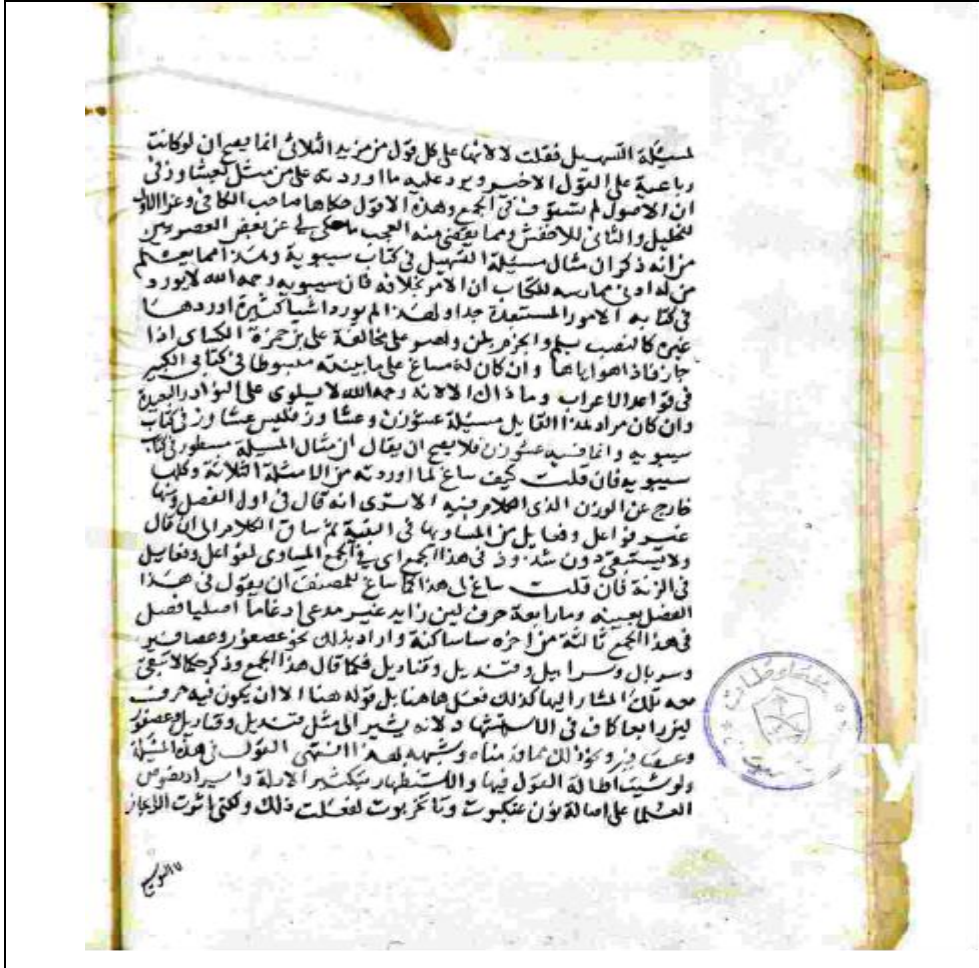 لمسئلة التسهيل فقلت لا لانها على كل قول من مزيد الثلاثى انما يصح ان لو كانت
رباعية على القول الاخير ويرد عليه ما اوردته على من مثل بعشاوزنى
ان الاصول لم تستوف فى الجمع وهذه الاقوال حكاها صاحب الكافى وعزا الاول
للخليل والثانى للاخفش ومما يقضى منه العجب ما حكى لى عن بعض العصريين
من انه ذكر ان مثال مسئلة التسهيل فى كتاب سيبويه وهذا مما يعلم
من له ادنى ممارسه للكتاب ان الامر بخلافه فان سيبويه رحمه الله لا يورد
فى كتابه الامور المستبعدة جدا ولهذا لم يورد اشياء كثيرة اوردها
غيره كالنصب بلم والجزم بلن ولهو على مخالفة على بن حمزة الكساى اذا
جاز فاذا هو اياها وان كان له مساغ على ما بينته مبسوطا فى كتابى الكبير
فى قواعد الاعراب وما ذاك الا لانه رحمه الله لا يلوى على النوادر البعيدة
وان كان مراد هذا القايل مسئلة عشوزن وعشاوز فليس عشاوز فى كتاب
سيبويه وانما فيه عشوزن فلا يصح ان يقال ان مثال المسئلة مسطور فى كتاب
سيبويه فان قلت كيف ساغ لما اوردته من الامثلة الثلاثة وكلها
خارج عن الوزن الذى الكلام فيه الا ترى انه قال فى اول الفصل ومنها
غير فواعل وفعايل من المساويها فى البنية ثم ساق الكلام الى ان قال
ولا يستبقى دون شذوذ فى هذا الجمع اى فى الجمع المساوى لفواعل وفعايل
فى الزنة فان قلت ساغ لى هذا كما ساغ للمصنف ان يقول فى هذا
الفصل بعينه وما رابعة حرف لين زايد غير مدغم ادغاما اصليا فصل
فى هذا الجمع ثالثة من اخره ساساكنة واراد بذلك نحو عصفور وعصافير
وسربال وسرابيل وقنديل وقناديل فكما قال هذا الجمع وذكر حكما لا تبقى
معه تلك المشار اليها كذلك فعل هاهنا بل قوله هنا الا ان يكون فيه حرف
لين رابعا كاف فى الاستشهاد لانه يشير الى مثل قنديل وقناديل وعصفور
وعصافير ونحو ذلك مما قدمناه وشبهه لهذا انتهى القول فى هذه المسئلة
ولو شئت اطالة القول فيها والاستظهار بتكثير الادلة وايراد نصوص
العلما على اصالة نون عنكبوت وتا تخربوت لفعلت ذلك ولكنى اثرت الايجاز